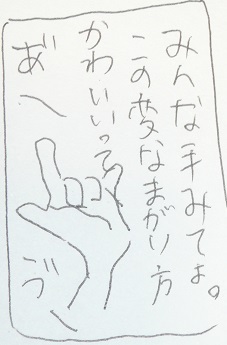 みんな手みてよ。
この変なまがり方
かわいいって
あ゛〜
ゔ